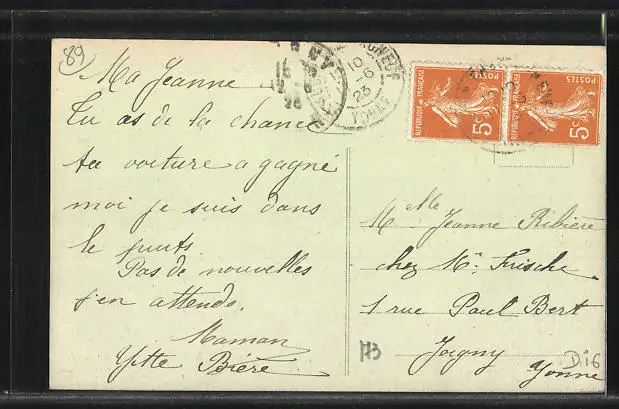 89
Ma Jeanne
Tu as de la chance
ta voiture a gagné
moi je suis dans
le puits
Pas de nouvelles
j'en attends.
Maman
Ytte Bière
10 - 6
23
YONNE
REPUBLIQUE FRANÇAISE
POSTES
5c
REPUBLIQUE FRANÇAISE
POSTES
5c
Melle Jeanne Ribière
chez Mr. Frische
1 rue Paul Bert
Joigny
Yonne
113
D.16